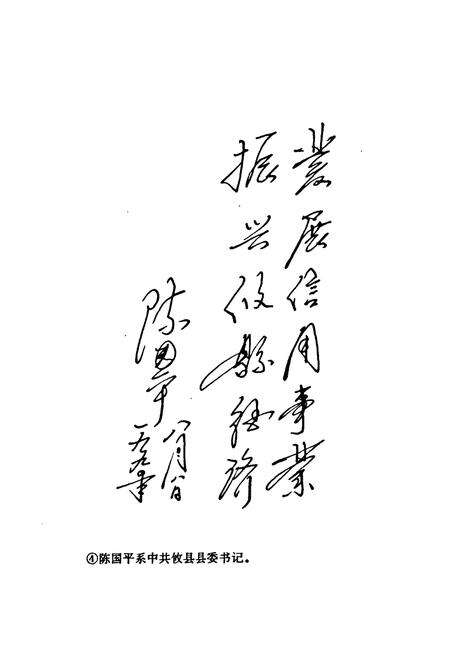 發展信用事業
振兴攸縣经济
陈国平
一九九年
八月八日
④陈国平系中共攸县县委书记。